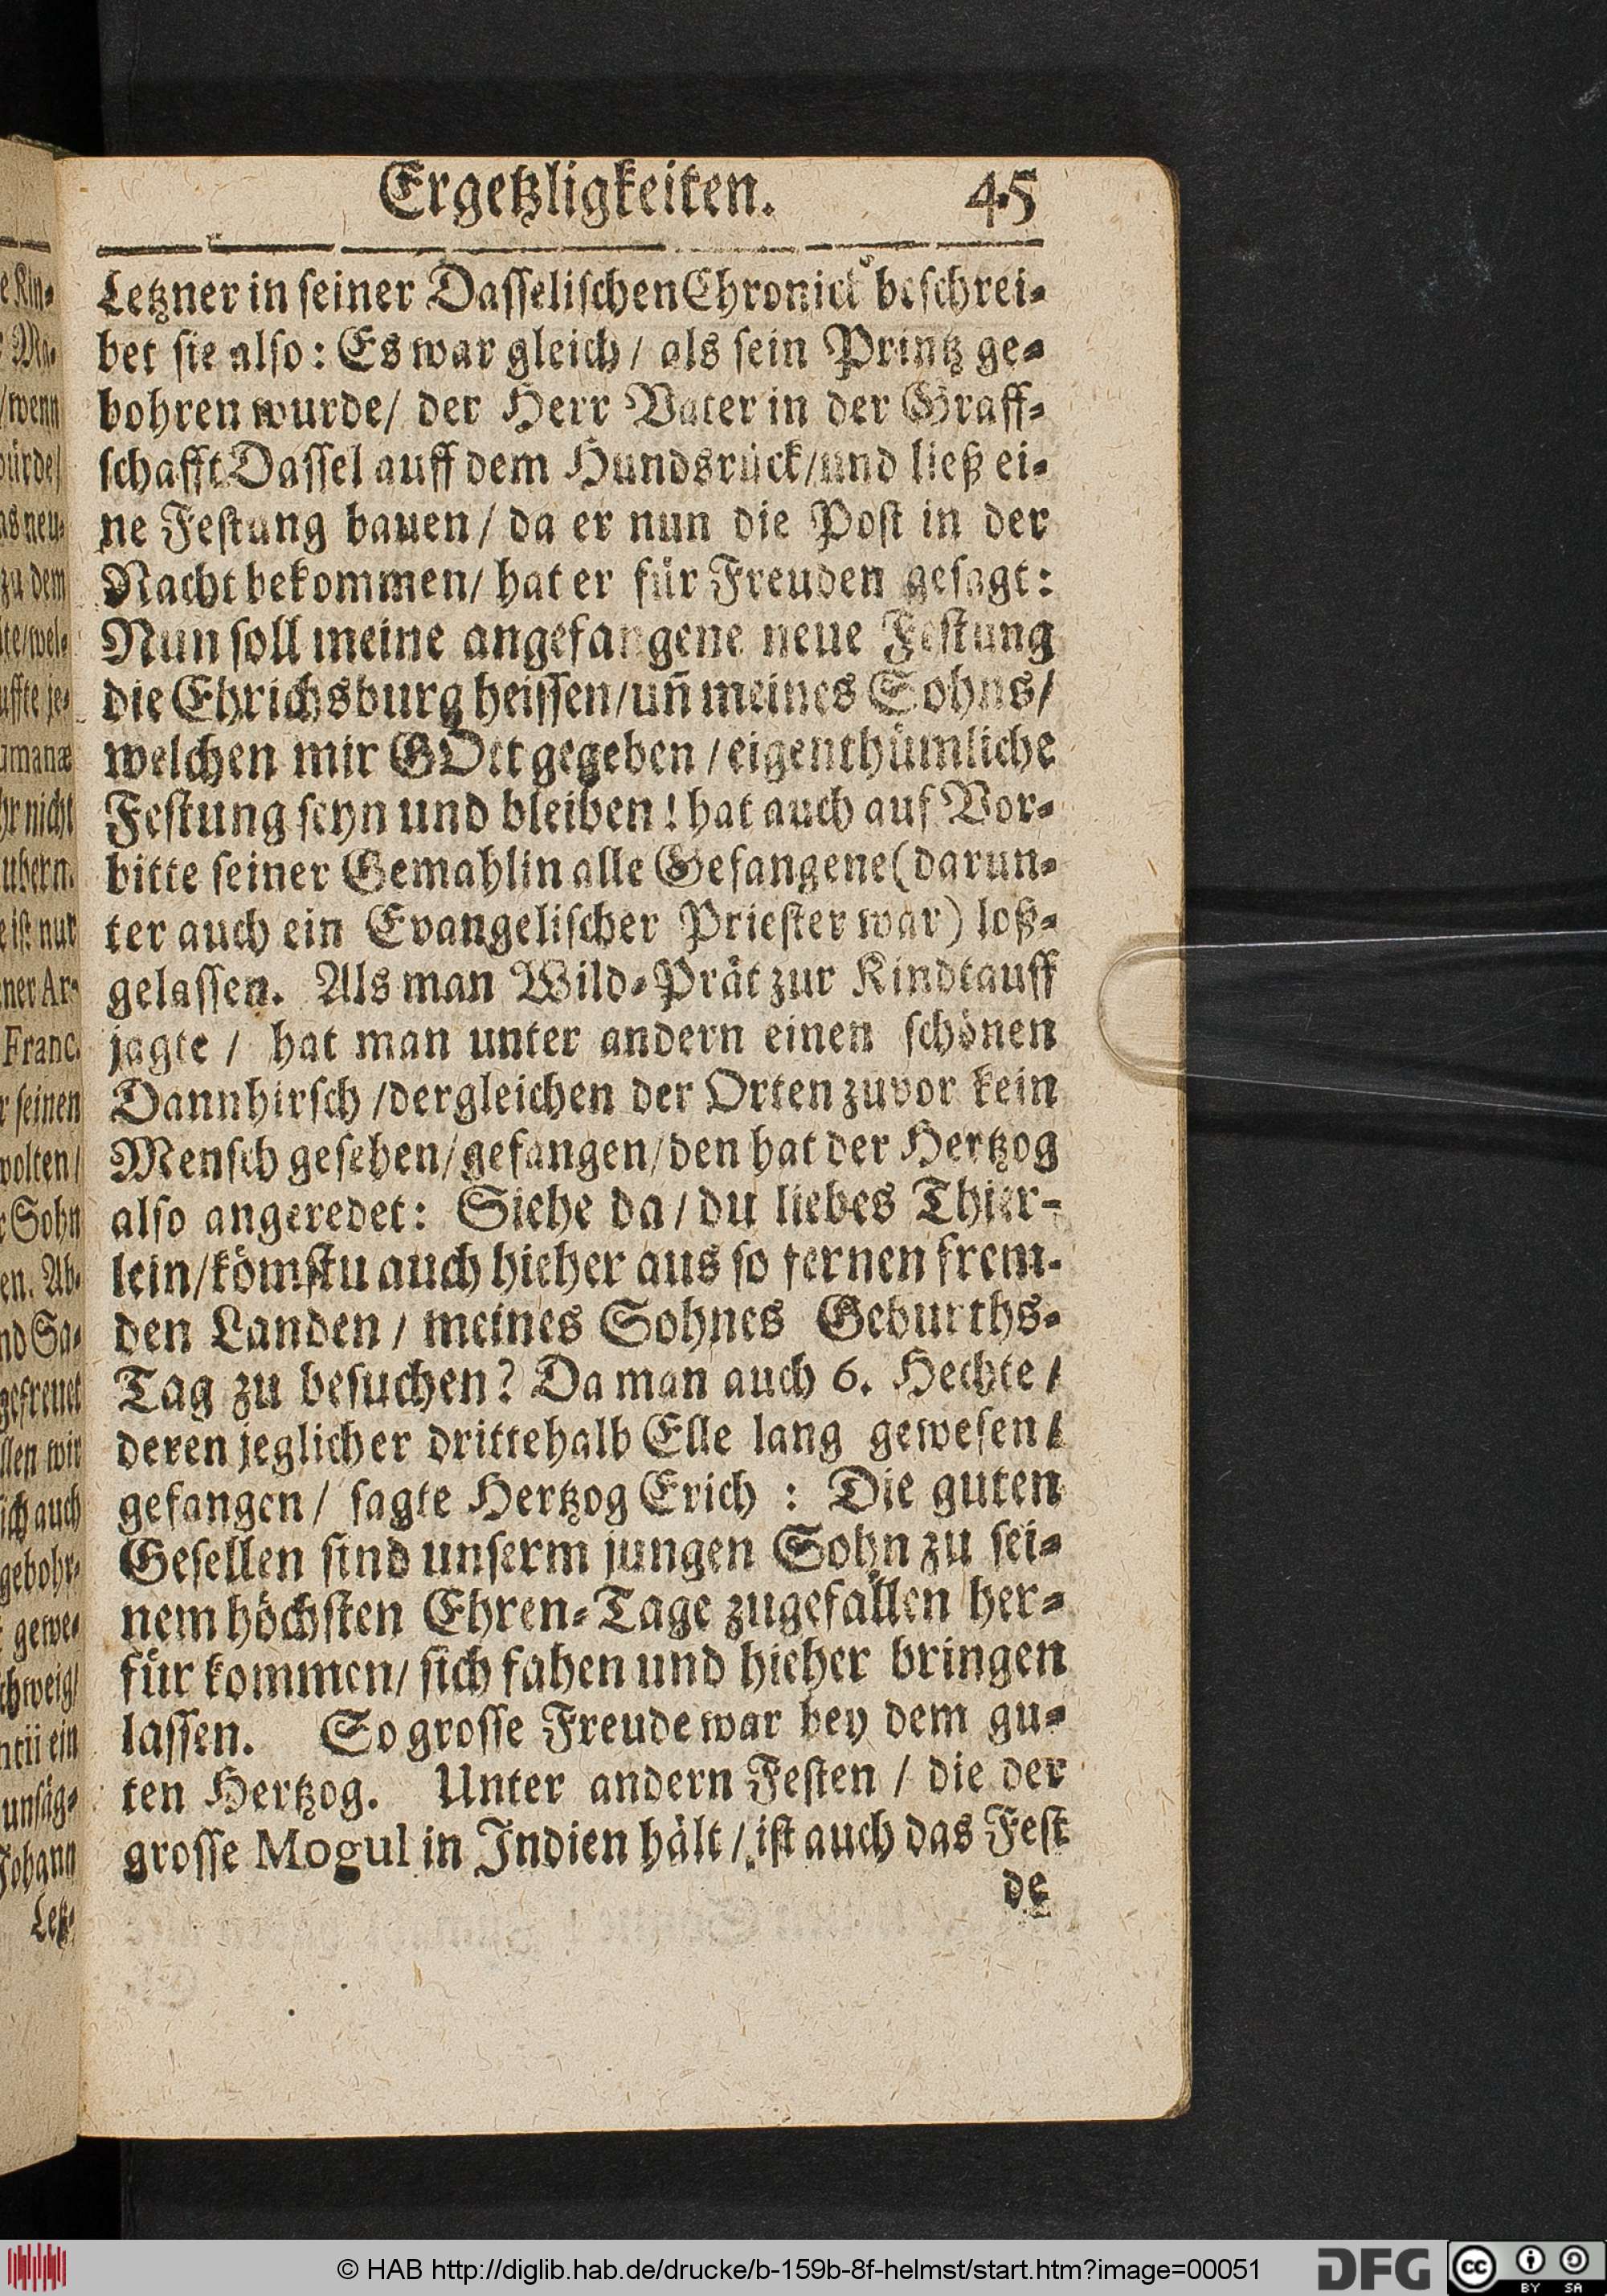 Ergetzligkeiten. 45
Letzner in seiner Dasselischen Chronick beschrei-
bet sie also: Es war gleich / als sein Printz ge-
bohren wurde / der Herr Vater in der Graff-
schafft Dassel auff dem Hundsrück / und ließ ei-
ne Festung bauen / da er nun die Post in der
Nacht bekommen / hat er für Freuden gesagt:
Nun soll meine angefangene neue Festung
die Ehrichsburg heissen / uñ meines Sohns /
welchen mir GOtt gegeben / eigenthümliche
Festung seyn und bleiben! hat auch auf Vor-
bitte seiner Gemahlin alle Gefangene (darun-
ter auch ein Evangelischer Priester war) loß-
gelassen. Als man Wild-Prät zur Kindtauff
jagte / hat man unter andern einen schönen
Dannhirsch / dergleichen der Orten zuvor kein
Mensch gesehen / gefangen / den hat der Hertzog
also angeredet: Siehe da / du liebes Thier-
lein / kömstu auch hieher aus so fernen frem-
den Landen / meines Sohnes Geburths-
Tag zu besuchen? Da man auch 6. Hechte /
deren jeglicher drittehalb Elle lang gewesen /
gefangen / sagte Hertzog Erich : Die guten
Gesellen sind unserm jungen Sohn zu sei-
nem höchsten Ehren-Tage zugefallen her-
für kommen / sich fahen und hieher bringen
lassen. So grosse Freude war bey dem gu-
ten Hertzog. Unter andern Festen / die der
grosse Mogul in Indien hält / ist auch das Fest
de
wenn
ürde /
as neu-
zu dem
umanæ
hr nicht
ist nur
Franc.
seinen
wolten /
Sohn
en. Ab-
gefreuet
llen wir
sich auch
gebohr-
gewe-
ntii ein
unsäg-
Johann
Letz-
© HAB http://diglib.hab.de/drucke/b-159b-8f-helmst/start.htm?image=00051
DFG
cc BY SA